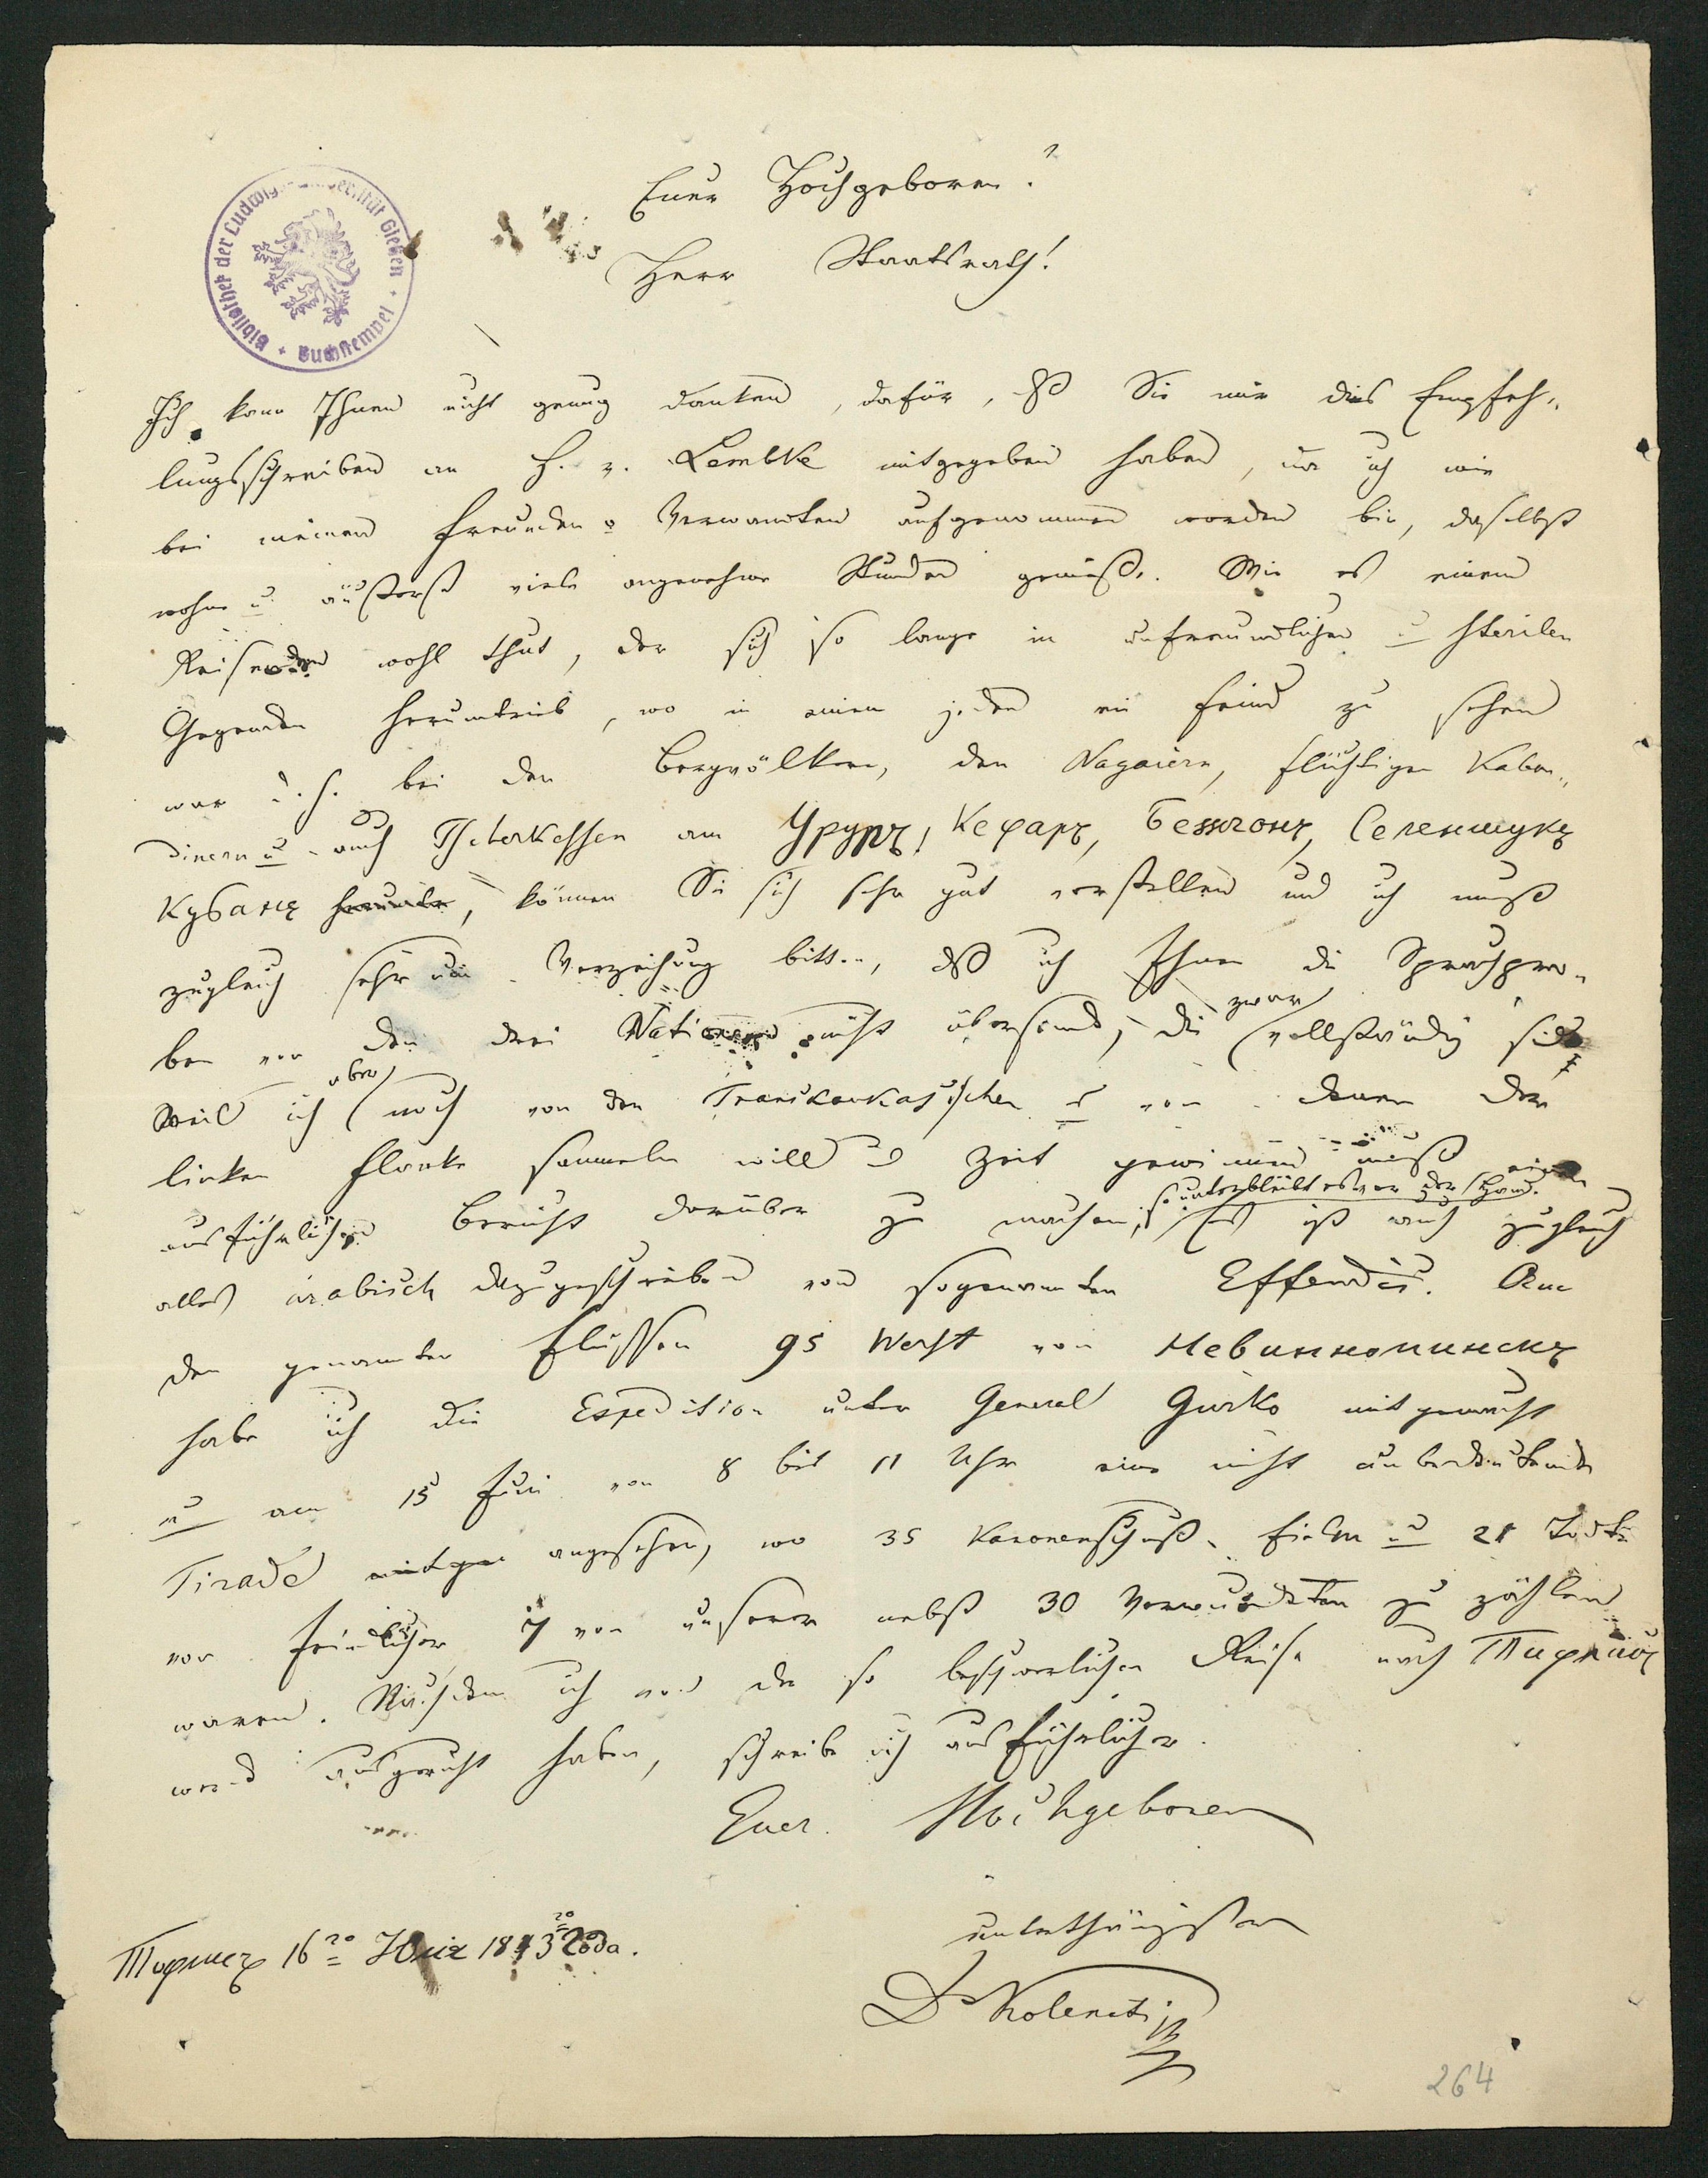 Bibliothek der Ludwigs-Universität Gießen + Buchstempel +
Euer Hochgeboren!
Herr Staatsrath!
Ich kann Ihnen nicht genug danken, dafür, dß Sie mir dies Empfeh-
lungsschreiben an H. v. Lembke mitgegeben haben, wo ich wie
bei meinen Freunden u Verwandten aufgenommen worden bin, daselbst
wohne u. äußerst viele angenehme Stunden genieße. Wie es einem
Reisenden wohl thut, der sich so lange in unfreundlichen u sterilen
Gegenden herumtrieb, wo in einem jeden ein Feind zu sehen
war d. h. bei den Bergvölkern, den Nagaiern, flüchtigen Kabar-
dinern u. auch Tscherkessen am Урупъ, Кефаръ, Бешгонъ, Селенчукъ
Кубань, können Sie sich sehr gut vorstellen und ich muß
zugleich sehr um Verzeihung bitten, dß ich Ihnen die Sprachpro-
ben von den drei Nationen nicht übersende, die zwar vollständig sind
weil ich aber noch von den Transkaukasischen u von denen der
linken Flanke sammeln will u Zeit gewinnen muß einen
ausführlichen Bericht darüber zu machen, so unterbleibt es vor der Hand. Es ist auch zugleich
alles arabisch dazugeschrieben von sogenannten Effendis. An
den genannten Flüssen 95 Werst von Невинноминскъ
habe ich die Expedition unter General Gurko mitgemacht
u am 15 Juni von 8 bis 11 Uhr eine nicht unbedeutende
Tirade angesehen, wo 35 Kanonenschuße fielen u 21 Todte
von feindlicher 7 von unserer nebst 30 Verwundeten zu zählen
waren. Nachdem ich von der so beschwerlichen Reise nach Тифлисъ
werd ausgeruht haben, schreibe ich ausführlicher.
Euer Hochgeboren
unterthänigster
Dr Kolenati
Тифлисъ 16го Юля 1843го года.
264